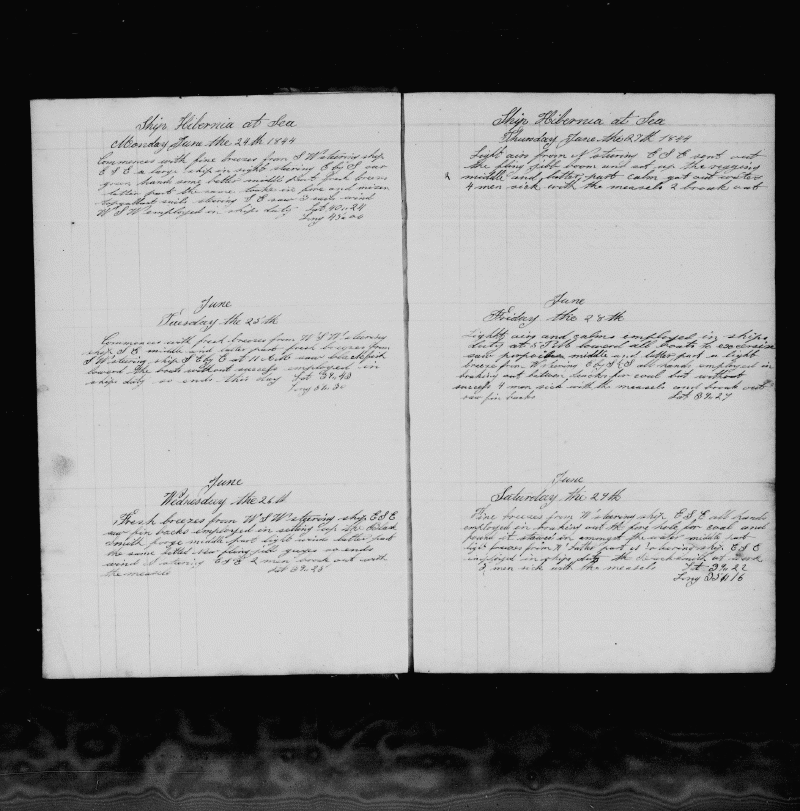 Ship Hibernia at Sea
Monday June the 24th 1844
Commences with fine breezes from S W steering ship
E S E a large ship in sight stearing E by S our
middle part fresh breezes
latter part the same took in fore and mizen
topgallant sails steering S E saw 3 sails wind
W S W employed in ships duty Lat 40..24
Long 43..00
June
Tuesday the 25th
Commences with fresh breezes from W S W steering
ship S E middle and latter part fresh breezes from
S W steering ship E by E at 11 A.M. saw blackfish
lowerd the boats without success employed in
ships duty so ends this day Lat 39..43
Long
June
Wednesday the 26th
Fresh breezes from W S W steering ship E S E
saw fin backs employed in setting up the black
smith forge middle part light winds latter part
the same so ends
wind steering E S E 2 men broak out with
the measels Lat 39..25
Ship Hibernia at Sea
Thursday June the 27th 1844
Light airs from stearing E S E sent out
the flying jib boom and set up the rigging
middle and latter part calm got out water
4 men sick with the measels 2 broak out
June
Friday the 28th
Lights airs and calms employed in ships
duty at 5 P.M. lowerd all boats to exercise
middle and latter part a light
breeze from W stearing E by S S all hands employed in
braking out between decks for coal but without
success 4 men sick with the measels and broak out
saw fin backs Lat 39..27
June
Saturday the 29th
Fine breezes from W stearing ship E S E all hands
employed in braking out the fore hold for coal and
found it stowed in amongst the water middle part
light breezes from latter part stearing ship E S E
employed in ships duty the blacksmith at work
2 men sick with the measels Lat 39..22
Long 35..16